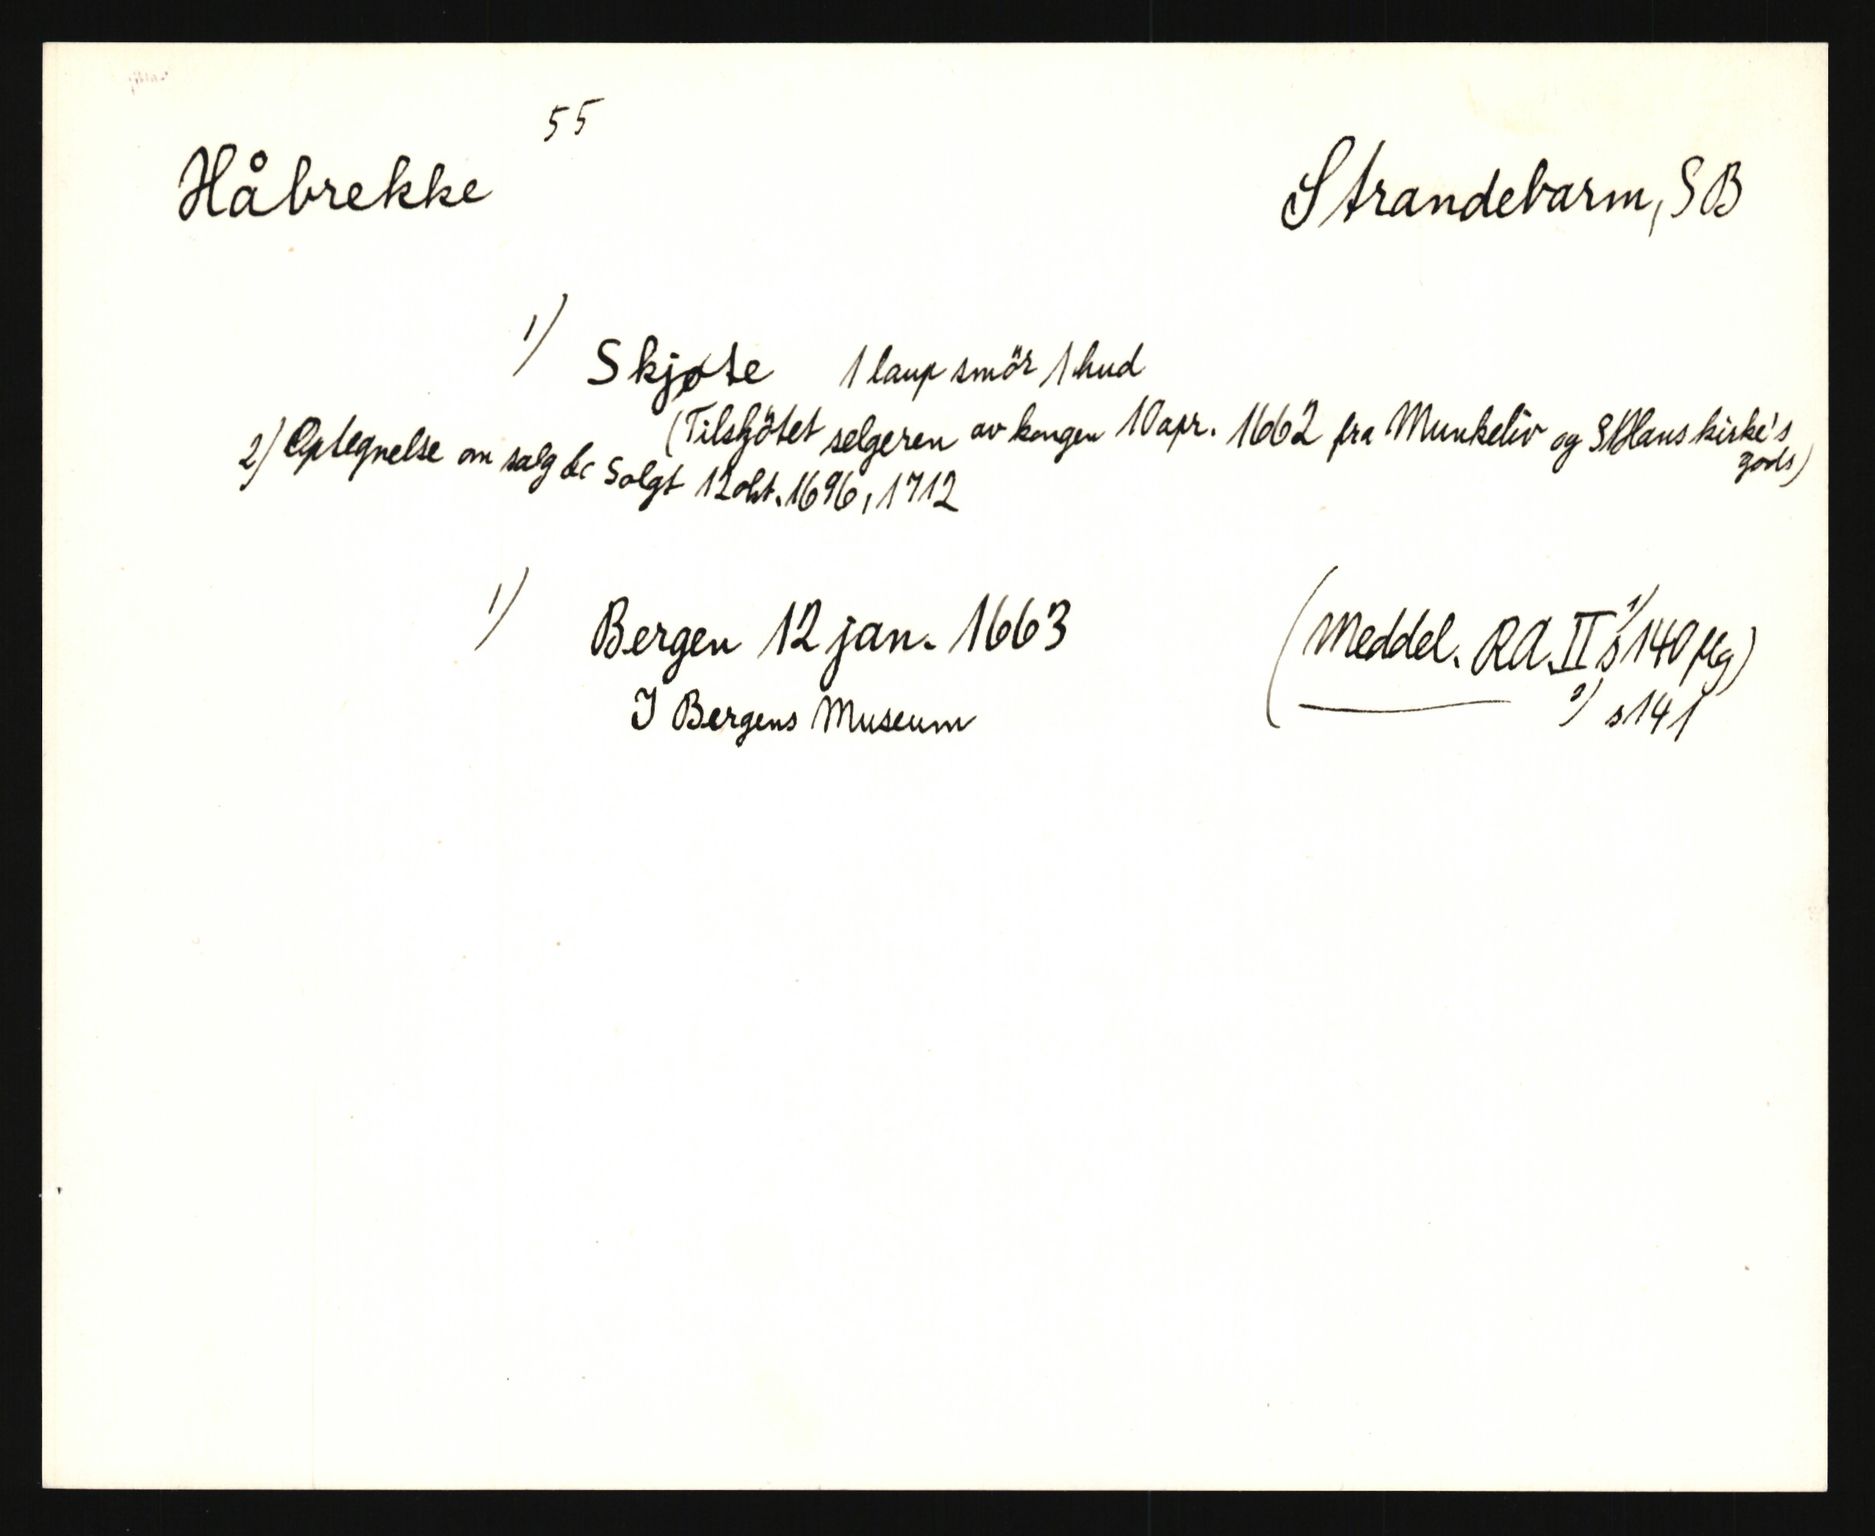 55
Håbrekke
Strandebarm, SB
1) Skjøte 1 laup smör 1 hud
(Tilskjötet selgeren av kongen 10 apr. 1662 fra Munkeliv og St Hans kirke's
gods)
2) Optegnelse om salg Solgt 12 okt. 1696, 1712
1) Bergen 12 jan. 1663
I Bergens Museum
(Meddel. RA. II 1) s 140 flg)
2) s 141